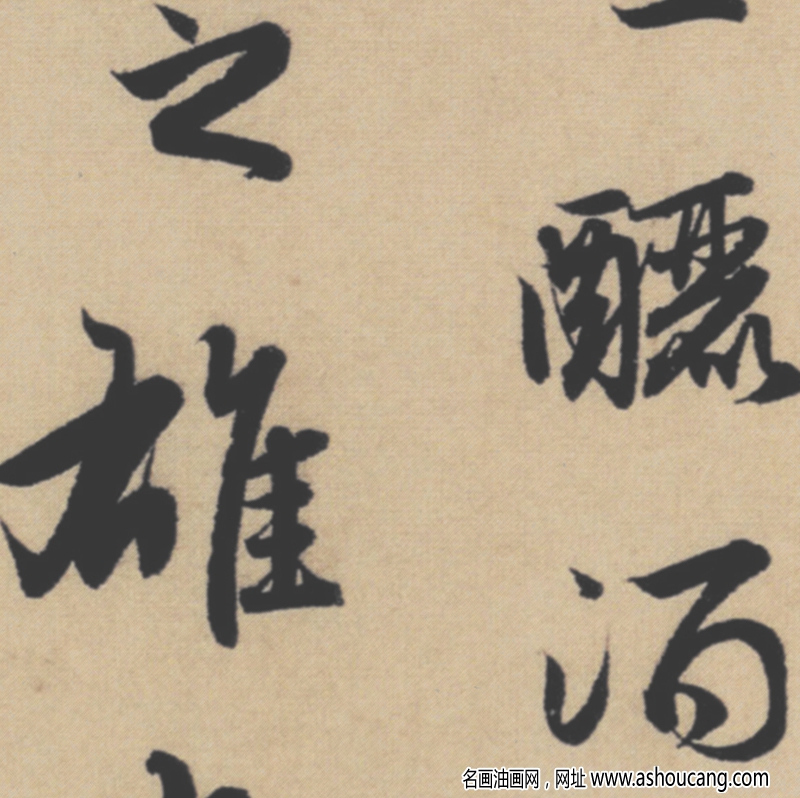 酾酒
之雄
名画油画网，网址 www.ashoucang.com